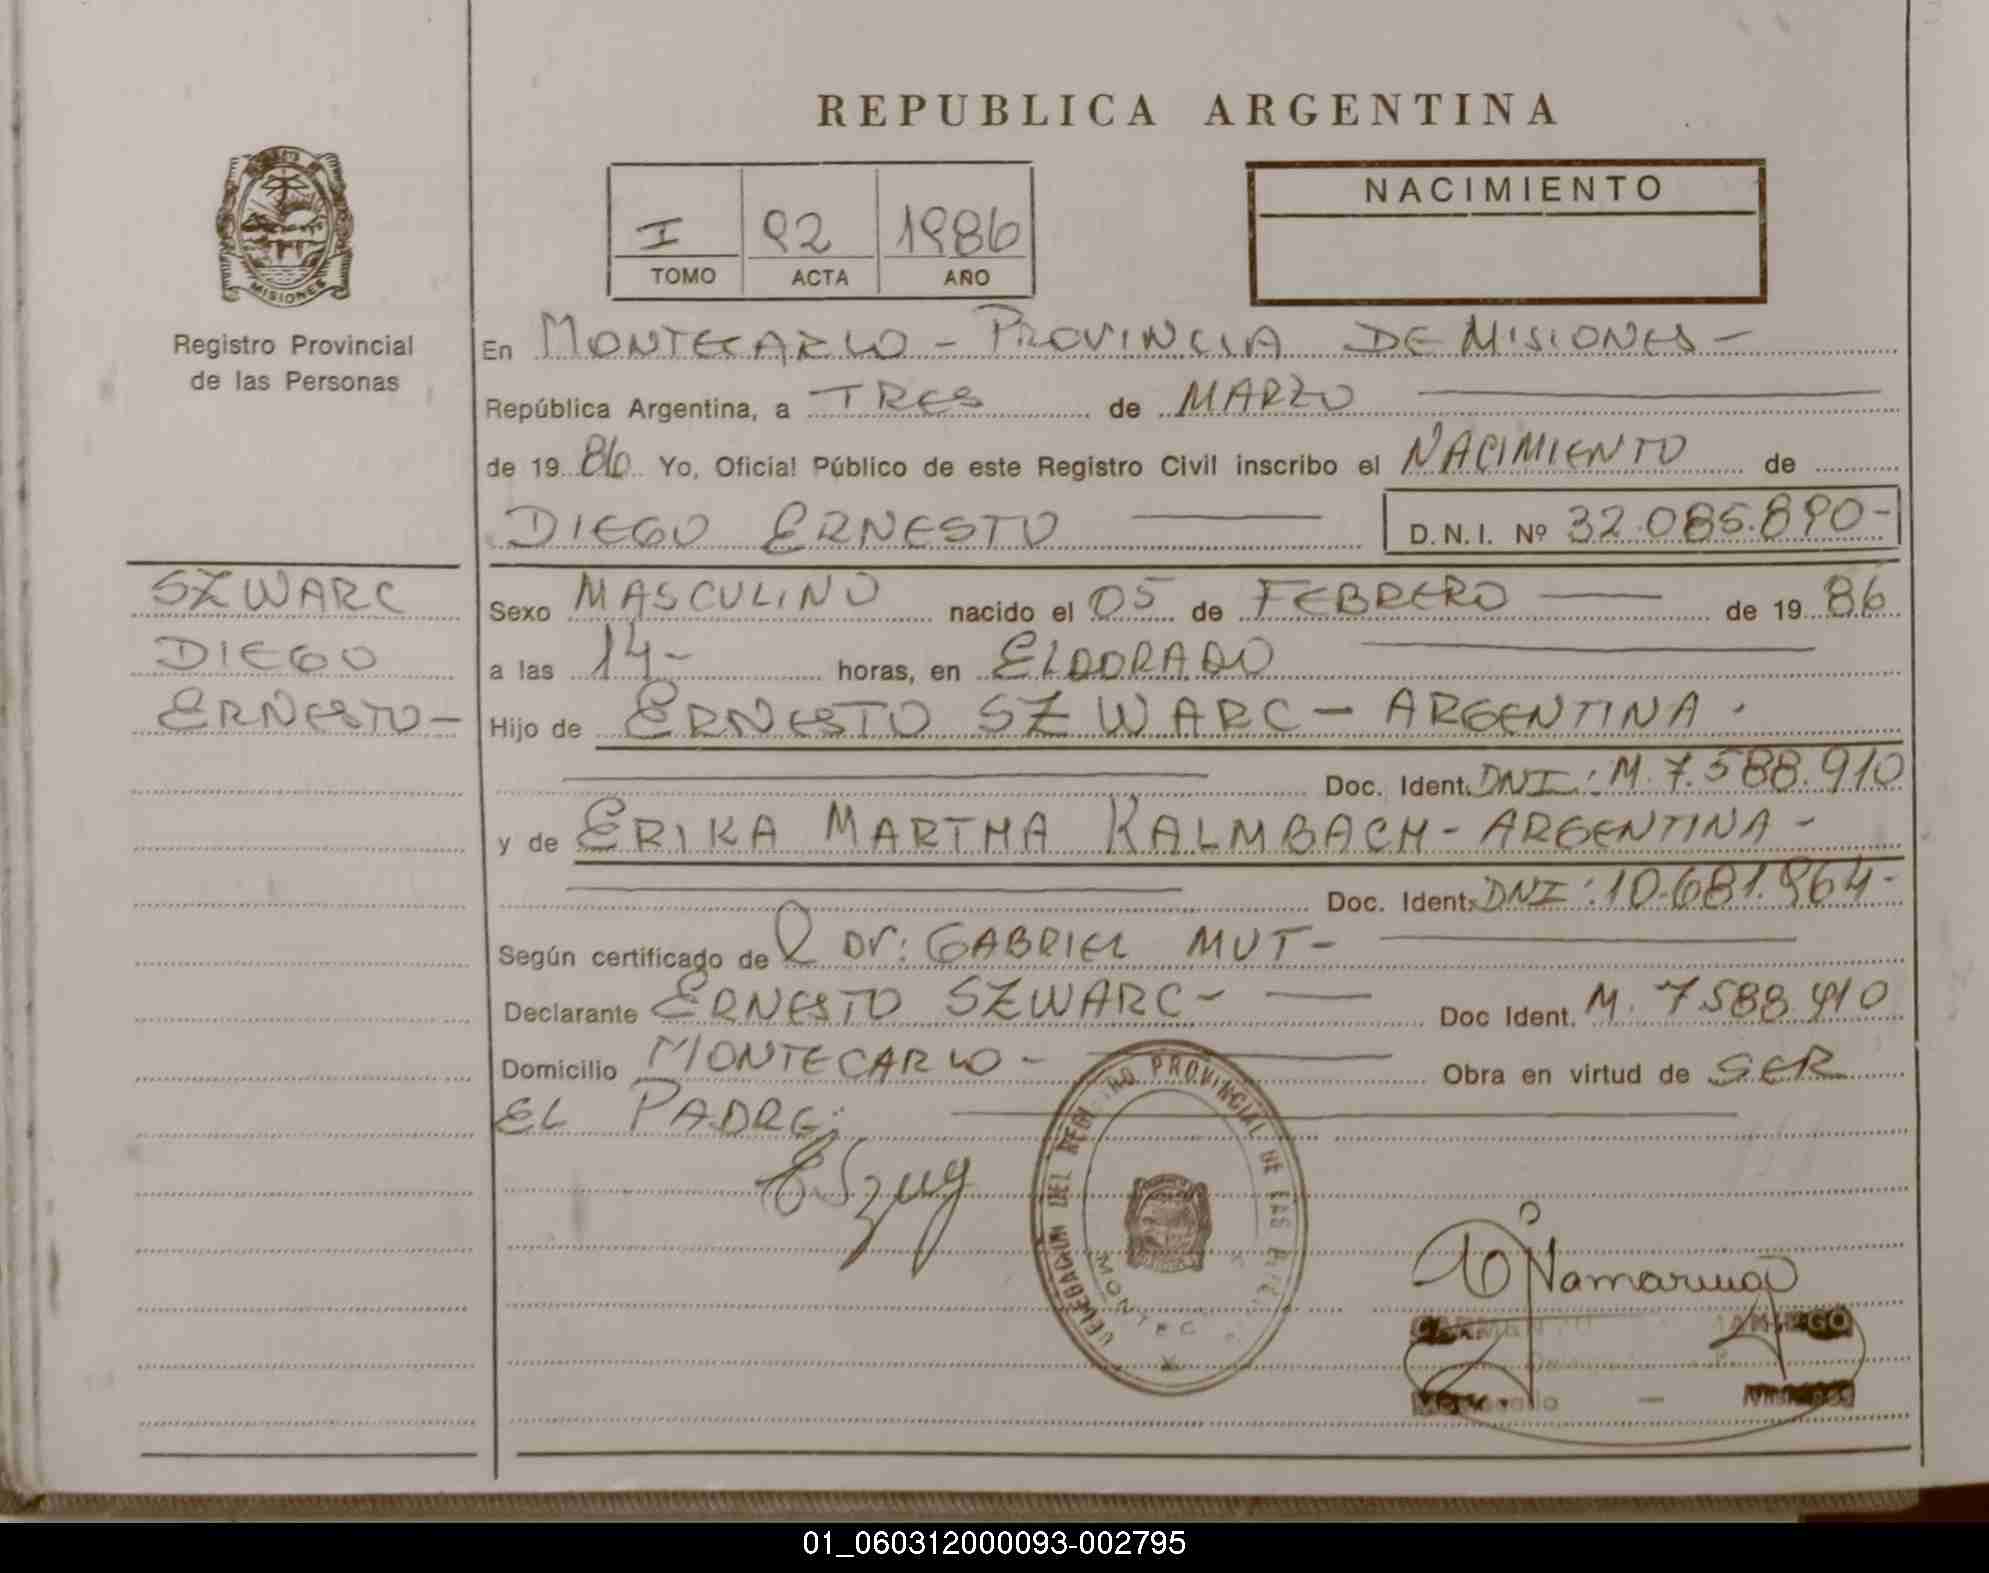 REPUBLICA ARGENTINA
NACIMIENTO
I 92 1986
TOMO ACTA AÑO
MISIONES
Registro Provincial
de las Personas
En MONTECARLO - PROVINCIA DE MISIONES -
República Argentina, a TRES de MARZO
de 19 86 Yo, Oficial Público de este Registro Civil inscribo el NACIMIENTO de
DIEGO ERNESTO D.N.I. Nº 32.085.890-
SZWARC
DIEGO
ERNESTO-
Sexo MASCULINO nacido el 05 de FEBRERO de 19 86
a las 14- horas, en ELDORADO
Hijo de ERNESTO SZWARC - ARGENTINA.
Doc. Ident. DNI: M. 7.588.910
y de ERIKA MARTHA KALMBACH - ARGENTINA -
Doc. Ident. DNI: 10.681.964-
Según certificado de Dr: GABRIEL MUT-
Declarante ERNESTO SZWARC- Doc Ident. M. 7588.910
Domicilio MONTECARLO - Obra en virtud de SER
EL PADRE:
DELEGACION DEL REGISTRO PROVINCIAL DE LAS
01_060312000093-002795